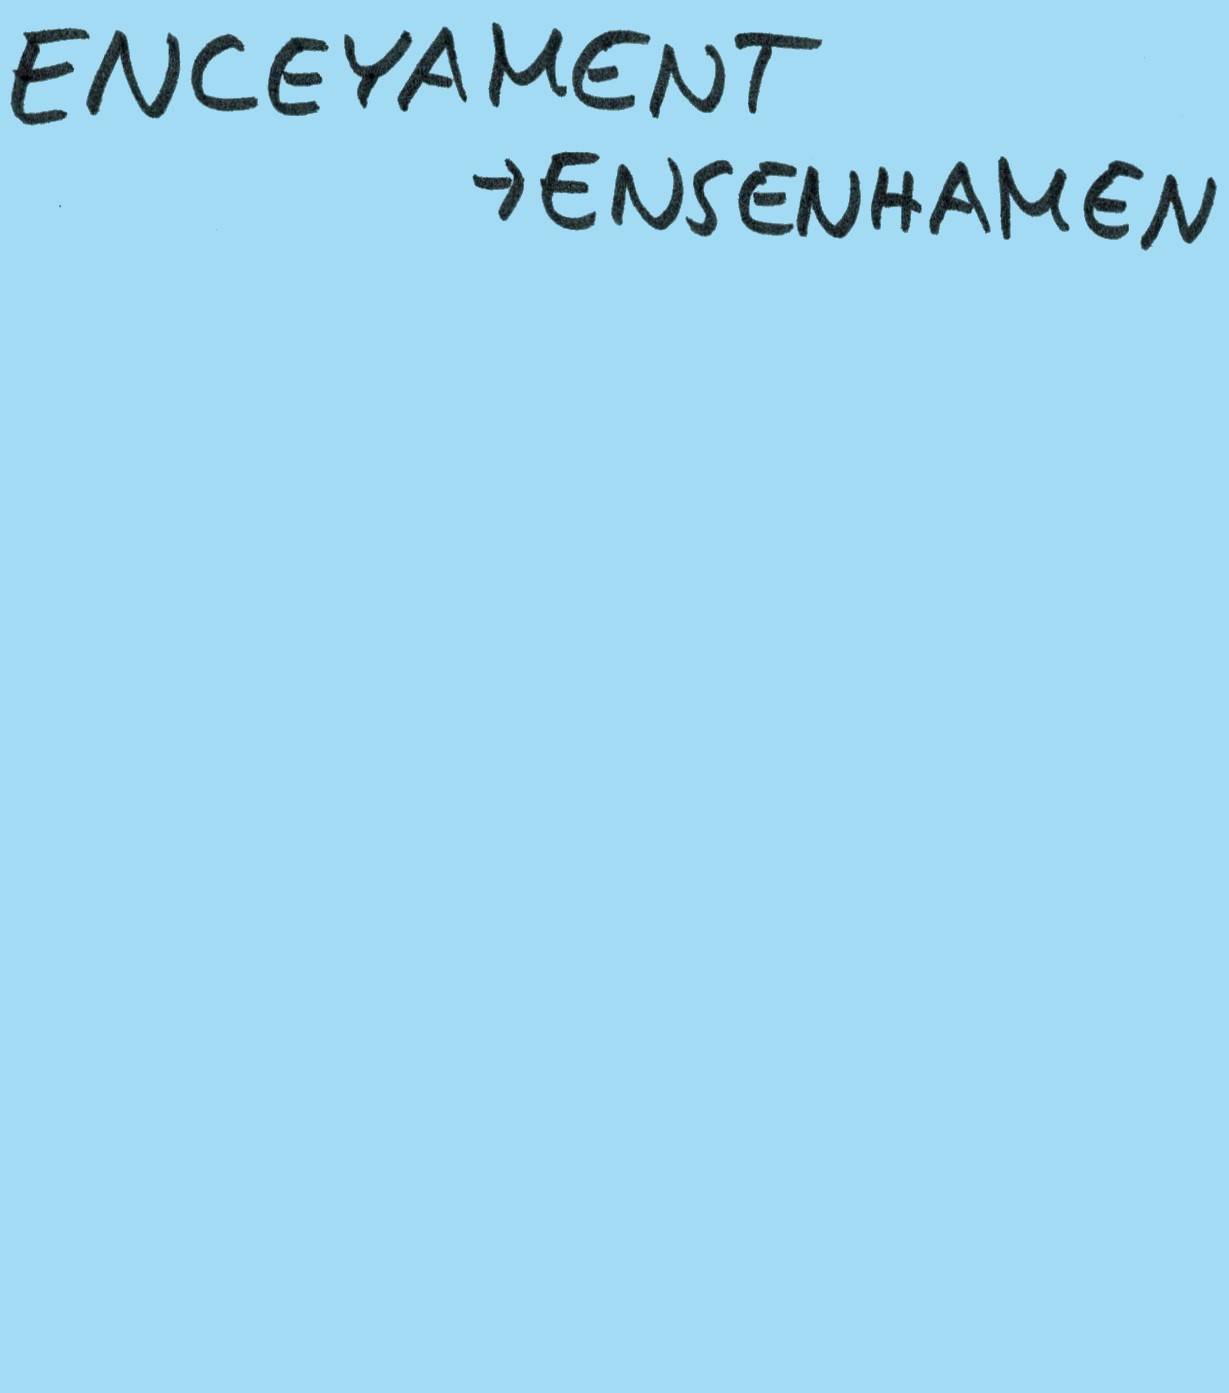 ENCEYAMENT
→ENSENHAMEN